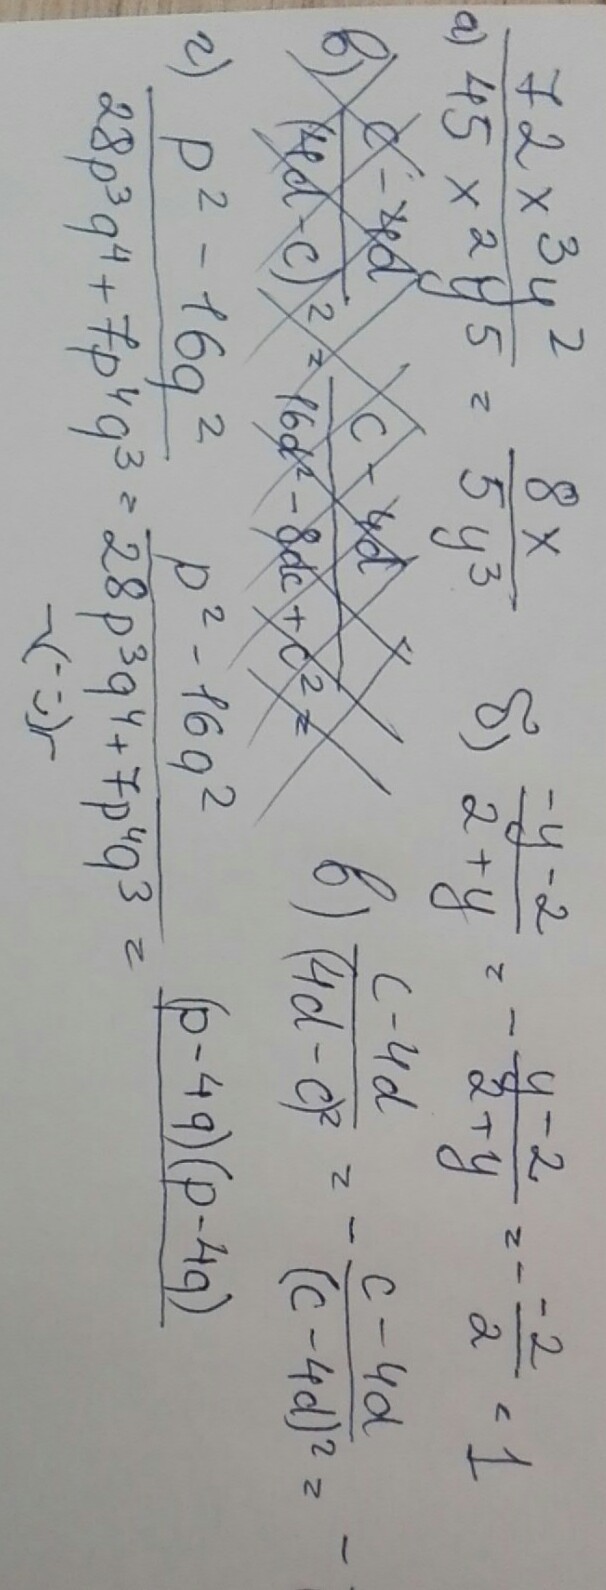 а) 72x³y² / 45x²y⁵ = 8x / 5y³ б) -y-2 / 2+y = - y-2 / 2+y = - -2 / 2 = 1
в) c-4d / (4d-c)² = c-4d / 16d²-8dc+c² = в) c-4d / (4d-c)² = - c-4d / (c-4d)² = -
г) p²-16q² / 28p³q⁴+7p⁴q³ = p²-16q² / 28p³q⁴+7p⁴q³ = (p-4q)(p-4q)